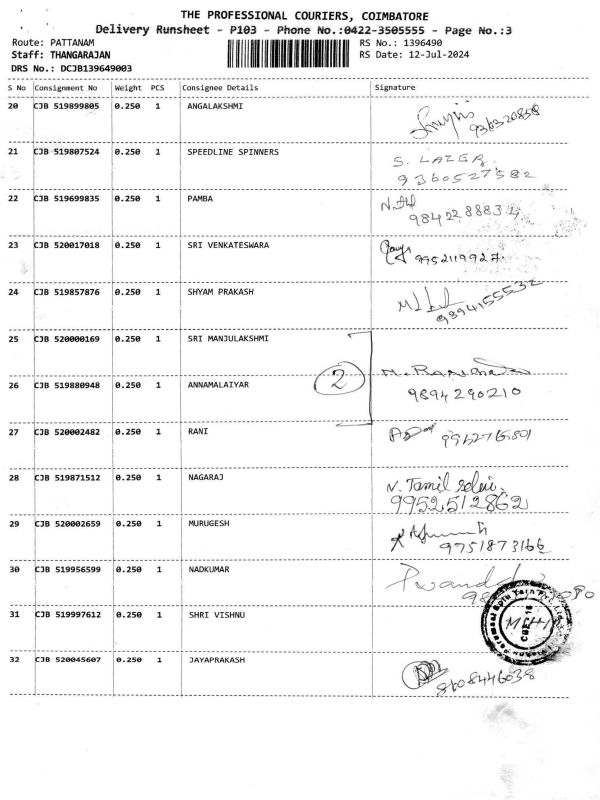 THE PROFESSIONAL COURIERS, COIMBATORE
Delivery Runsheet - P103 - Phone No.:0422-3505555 - Page No.:3
Route: PATTANAM RS No.: 1396490
Staff: THANGARAJAN RS Date: 12-Jul-2024
DRS No.: DCJB139649003
S No Consignment No Weight PCS Consignee Details Signature
20 CJB 519899805 0.250 1 ANGALAKSHMI
21 CJB 519807524 0.250 1 SPEEDLINE SPINNERS
S. LAZER
9360527582
22 CJB 519699835 0.250 1 PAMBA
23 CJB 520017018 0.250 1 SRI VENKATESWARA
9952119927
24 CJB 519857876 0.250 1 SHYAM PRAKASH
9894155532
25 CJB 520000169 0.250 1 SRI MANJULAKSHMI
2
26 CJB 519880948 0.250 1 ANNAMALAIYAR
9894290210
27 CJB 520002482 0.250 1 RANI
28 CJB 519871512 0.250 1 NAGARAJ
N. Tamil selvi
9952512862
29 CJB 520002659 0.250 1 MURUGESH
9751873166
30 CJB 519956599 0.250 1 NADKUMAR
31 CJB 519997612 0.250 1 SHRI VISHNU
32 CJB 520045607 0.250 1 JAYAPRAKASH
8608446038